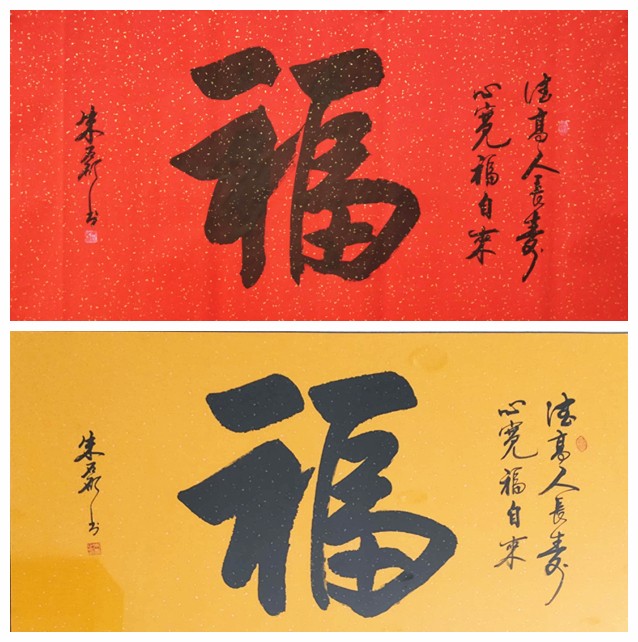 德高人長壽
心寬福自來
福
朱磊書
德高人長壽
心寬福自來
福
朱磊書